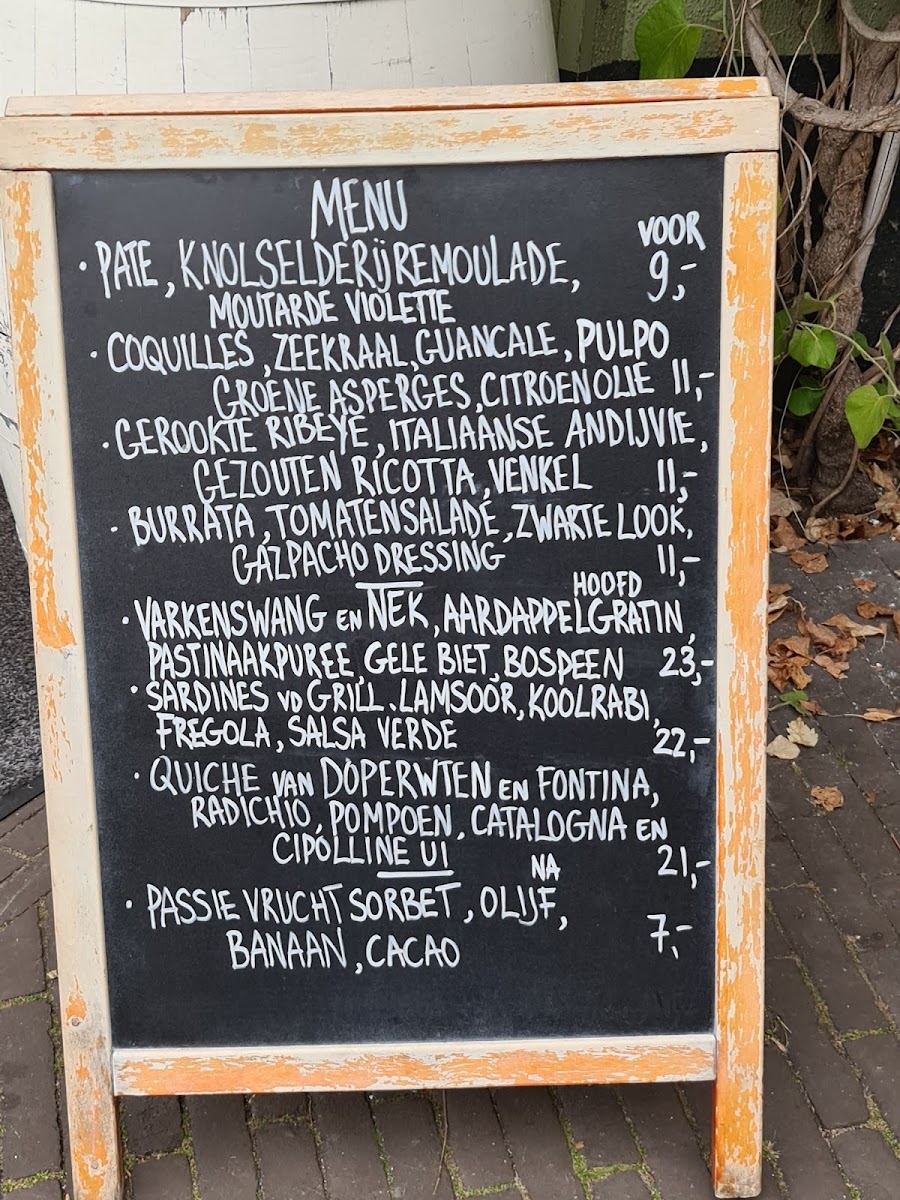 MENU
VOOR
· PATE, KNOLSELDERIJREMOULADE, 9,-
MOUTARDE VIOLETTE
· COQUILLES, ZEEKRAAL, GUANCALE, PULPO
GROENE ASPERGES, CITROENOLIE 11,-
· GEROOKTE RIBEYE, ITALIAANSE ANDIJVIE,
GEZOUTEN RICOTTA, VENKEL 11,-
· BURRATA, TOMATENSALADE, ZWARTE LOOK,
GAZPACHO DRESSING 11,-
HOOFD
· VARKENSWANG EN NEK, AARDAPPELGRATIN,
PASTINAAKPUREE, GELE BIET, BOSPEEN 23,-
· SARDINES VD GRILL. LAMSOOR, KOOLRABI,
FREGOLA, SALSA VERDE 22,-
· QUICHE VAN DOPERWTEN EN FONTINA,
RADICHIO, POMPOEN, CATALOGNA EN
CIPOLLINE UI 21,-
NA
· PASSIE VRUCHT SORBET, OLIJF,
BANAAN, CACAO 7,-